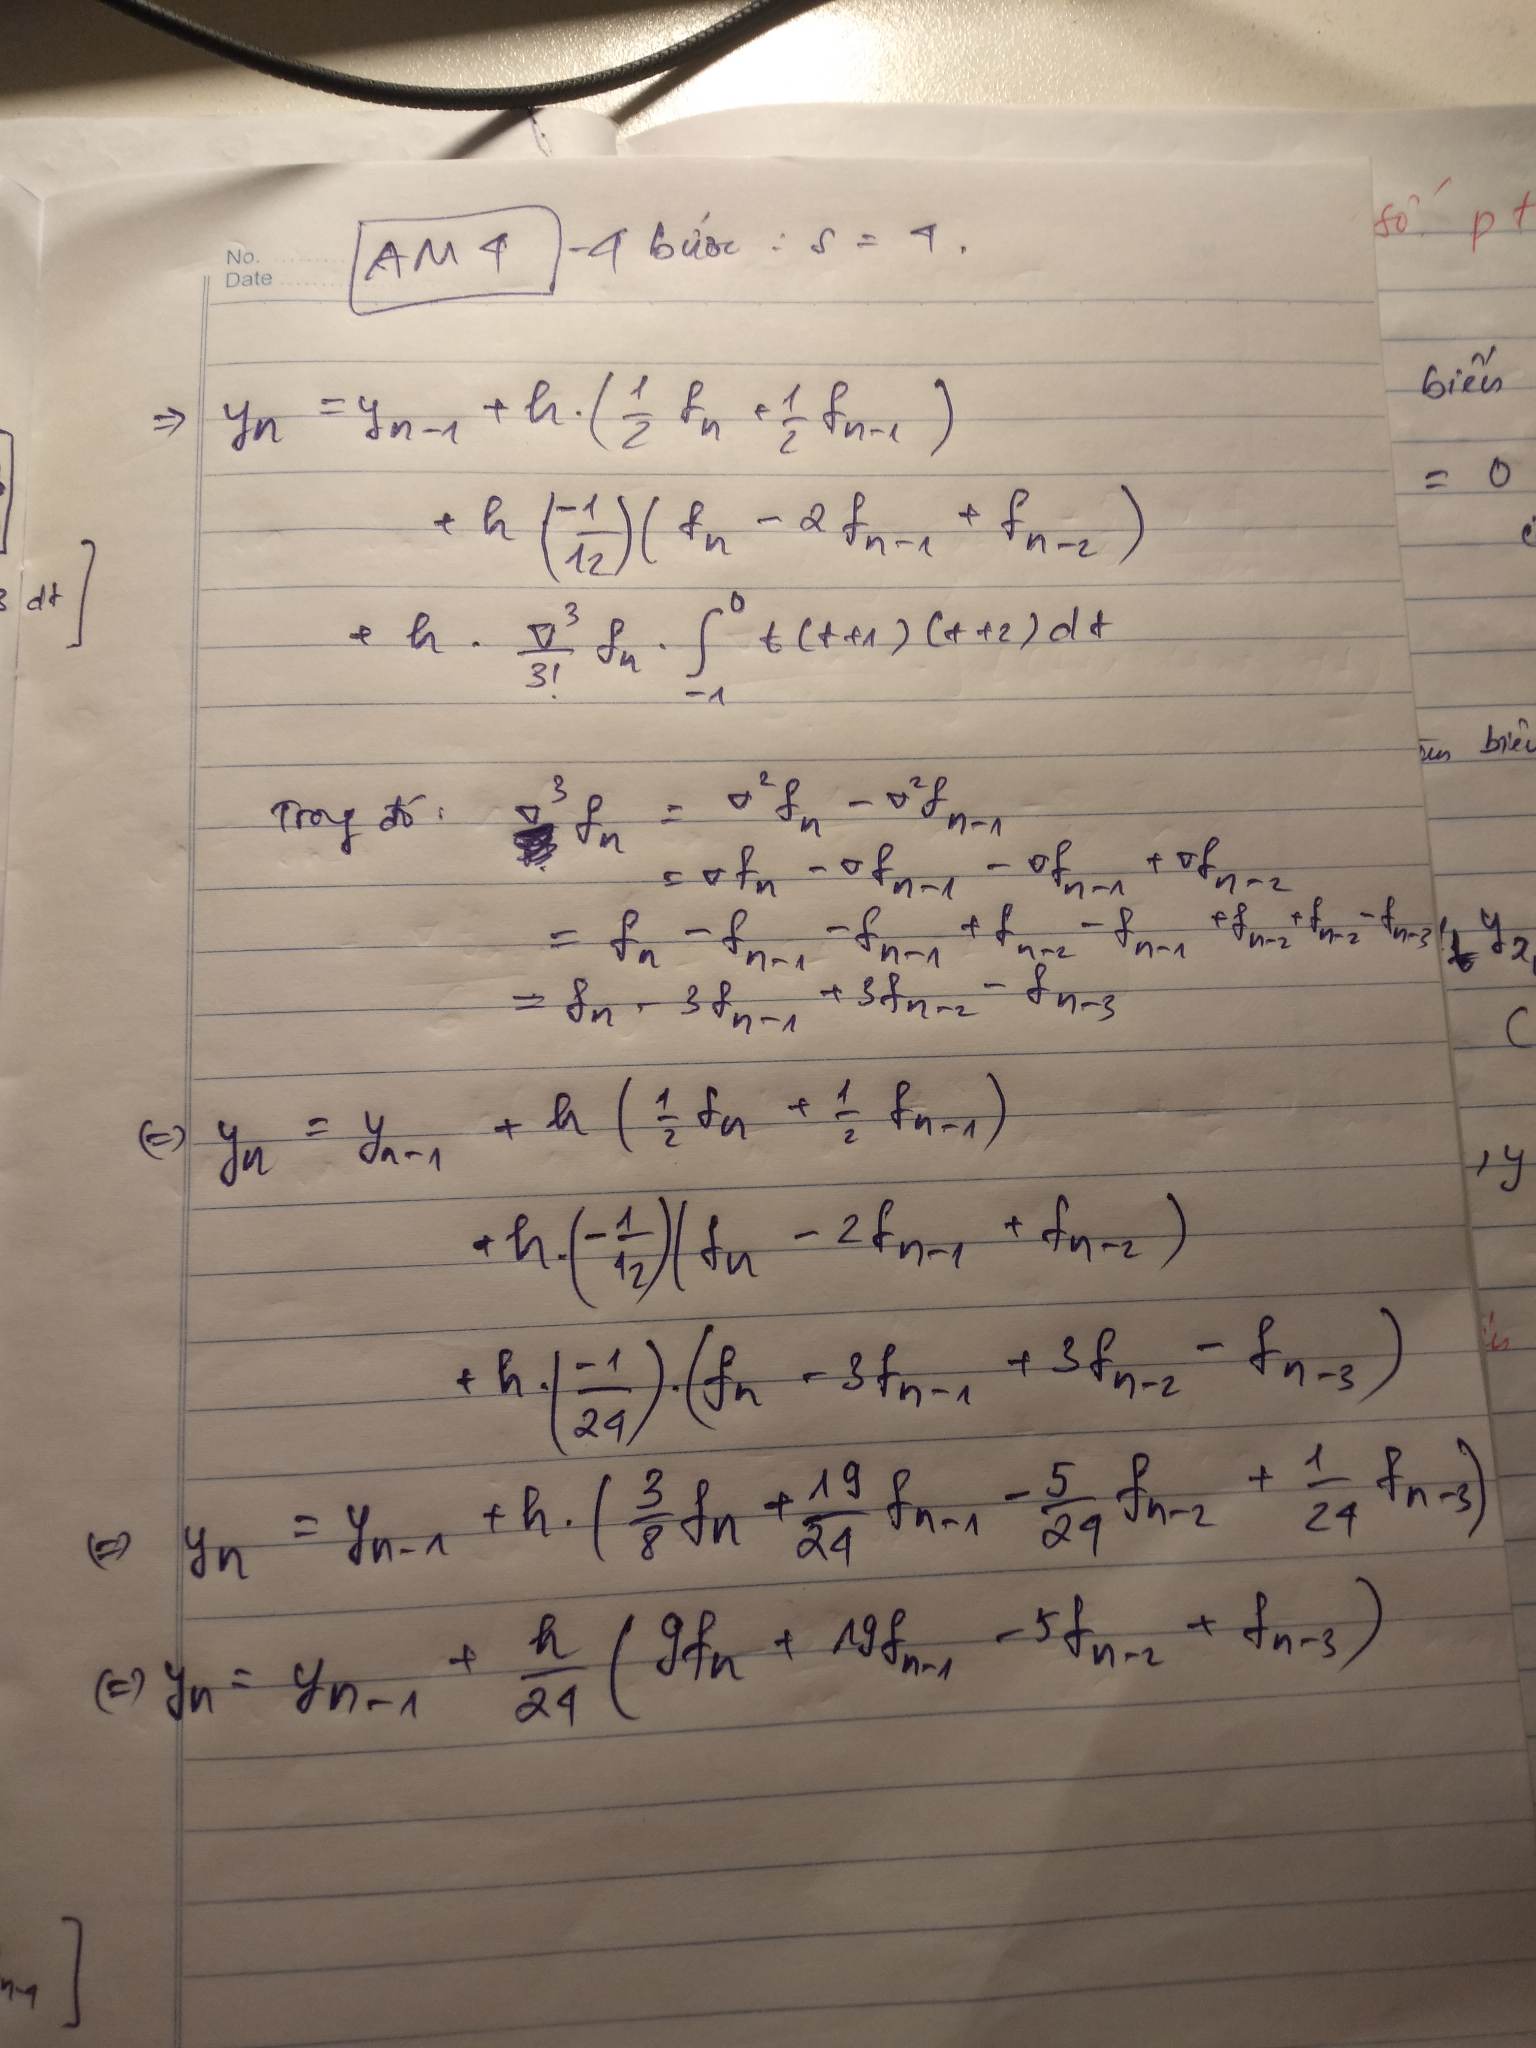 No.
Date
AM4 - 4 bước : s = 4.
số pt
⇒ yₙ = yₙ₋₁ + h.(1/2 fₙ + 1/2 fₙ₋₁)
biến
+ h (-1/12)(fₙ - 2fₙ₋₁ + fₙ₋₂)
= 0
dt]
+ h . ∇³/3! fₙ . ∫₋₁⁰ t(t+1)(t+2)dt
Trong đó: ∇³fₙ = ∇²fₙ - ∇²fₙ₋₁
= ∇fₙ - ∇fₙ₋₁ - ∇fₙ₋₁ + ∇fₙ₋₂
= fₙ - fₙ₋₁ - fₙ₋₁ + fₙ₋₂ - fₙ₋₁ + fₙ₋₂ + fₙ₋₂ - fₙ₋₃
= fₙ - 3fₙ₋₁ + 3fₙ₋₂ - fₙ₋₃
(=) yₙ = yₙ₋₁ + h (1/2 fₙ + 1/2 fₙ₋₁)
, y
+ h.(-1/12)(fₙ - 2fₙ₋₁ + fₙ₋₂)
+ h.(-1/24).(fₙ - 3fₙ₋₁ + 3fₙ₋₂ - fₙ₋₃)
(=) yₙ = yₙ₋₁ + h.(3/8 fₙ + 19/24 fₙ₋₁ - 5/24 fₙ₋₂ + 1/24 fₙ₋₃)
(=) yₙ = yₙ₋₁ + h/24 (9fₙ + 19fₙ₋₁ - 5fₙ₋₂ + fₙ₋₃)